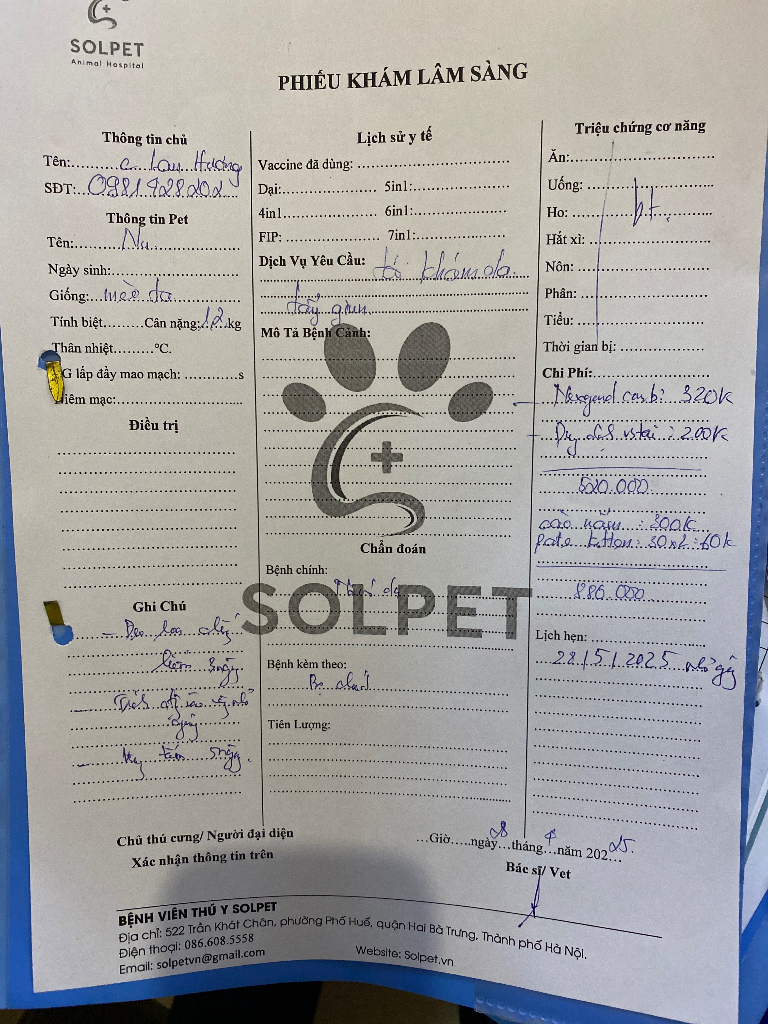 SOLPET
Animal Hospital
PHIẾU KHÁM LÂM SÀNG
Thông tin chủ
Tên:.......c Lan Hương
SĐT:..0981928202
Thông tin Pet
Tên:.......Nu
Ngày sinh:
Giống:..mèo ta
Tính biệt........Cân nặng:1,2.kg
Thân nhiệt.........°C.
G lấp đầy mao mạch: ............s
iêm mạc:
Điều trị
Ghi Chú
- Đeo loa chống
liếm
- ngày
- tắm 5 ngày
Lịch sử y tế
Vaccine đã dùng:
Dại: 5in1:
4in1 6in1:
FIP: 7in1:
Dịch Vụ Yêu Cầu: khám da
tẩy giun
Mô Tả Bệnh Cảnh:
Chẩn đoán
Bệnh chính:
SOLPET
Bệnh kèm theo:
Bọ chét
Tiên Lượng:
Triệu chứng cơ năng
Ăn:
Uống:
Ho: bt.
Hắt xì:
Nôn:
Phân:
Tiểu:
Thời gian bị:
Chi Phí:
- Nexgend comb: 320k
- : 200k
520.000
cạo nấm : 300k
pate : 30x2 : 60k
886.000
Lịch hẹn:
28/5/2025 nhỏ gáy
Chủ thú cưng/ Người đại diện
Xác nhận thông tin trên
...Giờ.....ngày 28 tháng 4 năm 2025.
Bác sĩ/ Vet
BỆNH VIỆN THÚ Y SOLPET
Địa chỉ: 522 Trần Khát Chân, phường Phố Huế, quận Hai Bà Trưng, Thành phố Hà Nội.
Điện thoại: 086.608.5558
Email: solpetvn@gmail.com Website: Solpet.vn